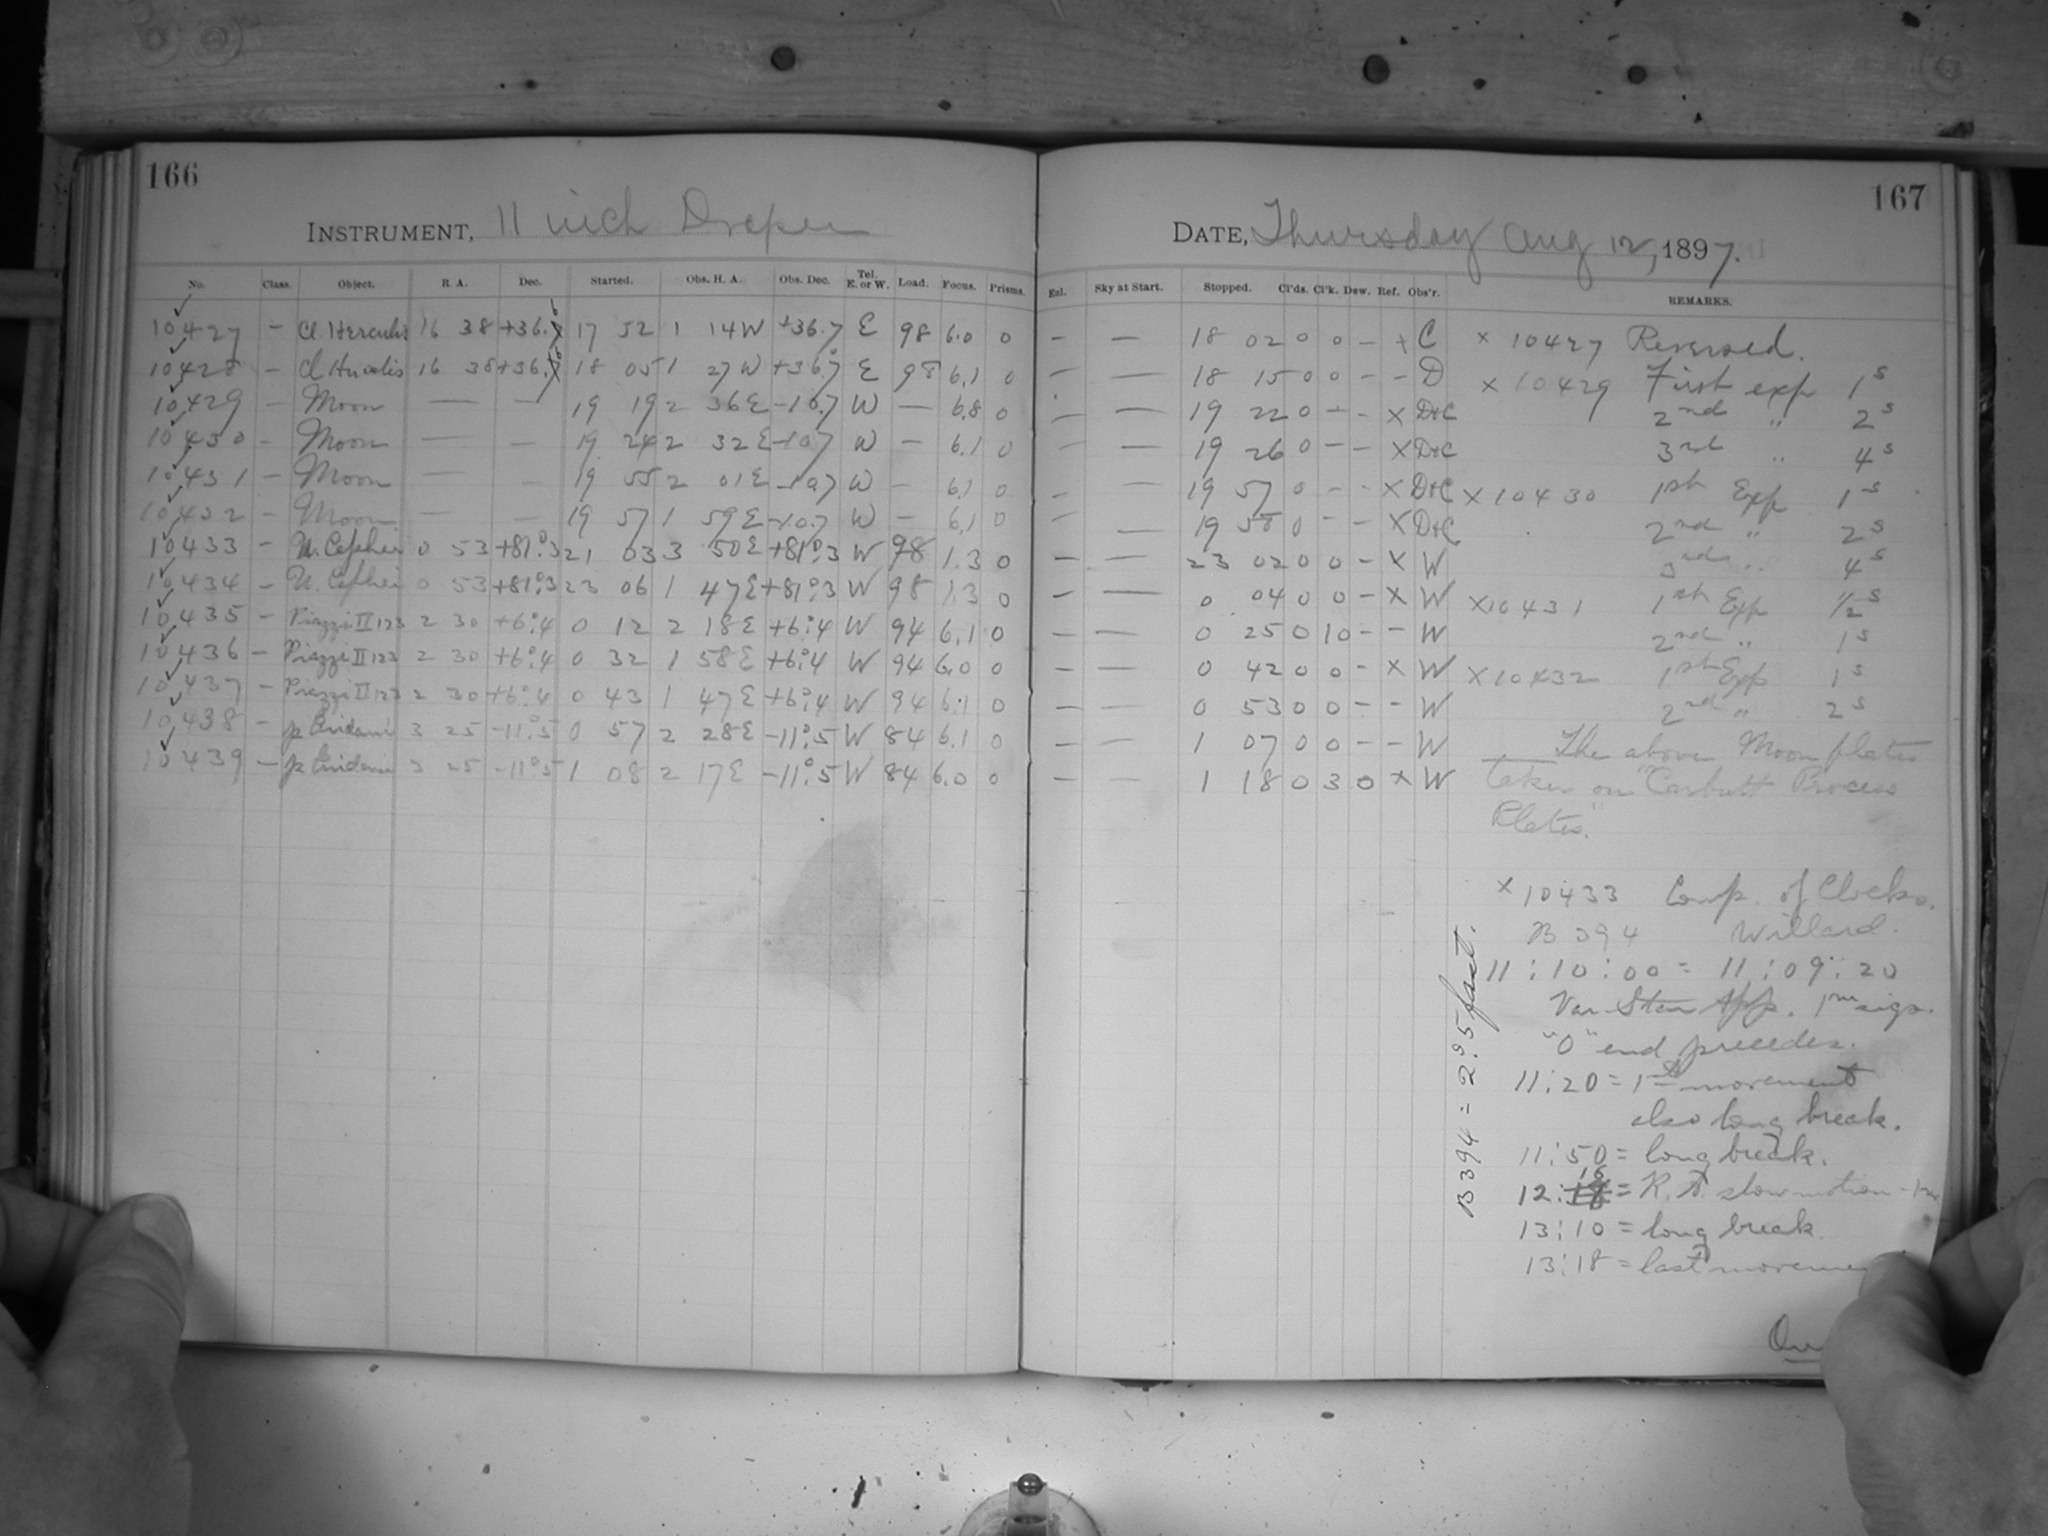 166
INSTRUMENT, 11 inch Draper
No. Class. Object. R. A. Dec. Started. Obs. H. A. Obs. Dec. Tel. E. or W. Load. Focus. Prisms.
10427 – Cl. Herculis 16 38 +36.7 17 52 1 14W +36.7 E 98 6.0 0
10428 – Cl Herculis 16 38 +36.7 18 05 1 27W +36.7 E 98 6.1 0
10429 – Moon — — 19 19 2 36E –10.7 W — 6.8 0
10430 – Moon — — 19 24 2 32E –10.7 W – 6.1 0
10431 – Moon — — 19 55 2 01E –10.7 W – 6.1 0
10432 – Moon — — 19 57 1 59E –10.7 W – 6.1 0
10433 – U. Cephei 0 53 +81°.3 21 03 3 50E +81°.3 W 98 1.3 0
10434 – U. Cephei 0 53 +81°.3 23 06 1 47E +81°.3 W 98 1.3 0
10435 – Piazzi II 123 2 30 +6°.4 0 12 2 18E +6°.4 W 94 6.1 0
10436 – Piazzi II 123 2 30 +6°.4 0 32 1 58E +6°.4 W 94 6.0 0
10437 – Piazzi II 123 2 30 +6°.4 0 43 1 47E +6°.4 W 94 6.1 0
10438 – p Eridani 3 25 –11°.5 0 57 2 28E –11°.5 W 84 6.1 0
10439 – p Eridani 3 25 –11°.5 1 08 2 17E –11°.5 W 84 6.0 0
167
DATE, Thursday Aug 12, 1897.
Enl. Sky at Start. Stopped. Cl'ds. Cl'k. Dew. Ref. Obs'r. REMARKS.
– — 18 02 0 0 – + C
– — 18 15 0 0 – – D
– — 19 22 0 – – X D+C
– — 19 26 0 – – X D+C
– — 19 57 0 – – X D+C
– — 19 58 0 – – X D+C
– — 23 02 0 0 – X W
– — 0 04 0 0 – X W
– — 0 25 0 10 – – W
– — 0 42 0 0 – X W
– — 0 53 0 0 – – W
– — 1 07 0 0 – – W
– — 1 18 0 3 0 X W
X 10427 Reversed.
X 10429 First exp 1s
2nd " 2s
3rd " 4s
X 10430 1st Exp 1s
2nd " 2s
3rd " 4s
X 10431 1st Exp 1/2s
2nd " 1s
X 10432 1st Exp 1s
2nd " 2s
The above Moon plates
taken on "Carbutt Process
Plates."
X 10433 Comp. of Clocks.
B 394 Willard.
11:10:00 = 11:09:20
Var Star App. 1m sigs.
"O" end precedes.
11:20 = 1st movement
also long break.
11:50 = long break.
12:16 = R. A. slow motion
13:10 = long break.
13:18 = last
B 394 = 2s.5 fast.